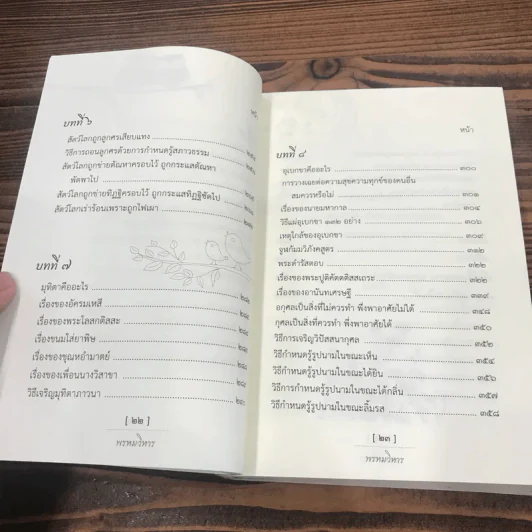 บทที่ ๖
หน้า
สัตว์โลกถูกลูกศรเสียบแทง
วิธีการถอนลูกศรด้วยการกำหนดรู้สภาวธรรม
สัตว์โลกถูกข่ายตัณหาครอบไว้ ถูกกระแสตัณหา
พัดพาไป
สัตว์โลกถูกข่ายทิฏฐิครอบไว้ ถูกกระแสทิฏฐิซัดไป
สัตว์โลกเร่าร้อนเพราะถูกไฟเผา
บทที่ ๗
มุทิตาคืออะไร
เรื่องของอัครมเหสี
เรื่องของพระโลสกติสสะ
เรื่องขนมใส่ยาพิษ
เรื่องของขุนหอำมาตย์
เรื่องของเพื่อนนางวิสาขา
วิธีเจริญมุทิตาภาวนา
[ ๒๒ ]
พรหมวิหาร
หน้า
บทที่ ๘
อุเบกขาคืออะไร ๓๐๐
การวางเฉยต่อความสุขความทุกข์ของคนอื่น
สมควรหรือไม่ ๓๐๑
เรื่องของนายมหากาล ๓๐๔
วิธีแผ่อุเบกขา ๑๓๒ อย่าง ๓๐๖
เหตุใกล้ของอุเบกขา ๓๐๙
จูฬกัมมวิภังคสูตร ๓๑๒
พระดำรัสตอบ ๓๒๒
เรื่องของพระปูติคัตตติสสเถระ ๓๒๒
เรื่องของอานันทเศรษฐี ๓๓๙
อกุศลเป็นสิ่งที่ไม่ควรทำ พึ่งพาอาศัยไม่ได้ ๓๔๘
กุศลเป็นสิ่งที่ควรทำ พึ่งพาอาศัยได้ ๓๕๐
วิธีการเจริญวิปัสสนากุศล ๓๕๒
วิธีกำหนดรู้รูปนามในขณะเห็น ๓๕๔
วิธีกำหนดรู้รูปนามในขณะได้ยิน ๓๕๖
วิธีการกำหนดรู้รูปนามในขณะได้กลิ่น ๓๕๗
วิธีกำหนดรู้รูปนามในขณะลิ้มรส ๓๕๘
[ ๒๓ ]
พรหมวิหาร